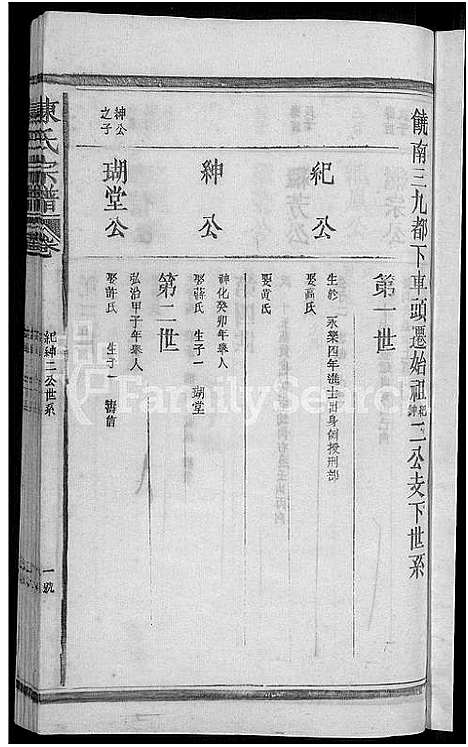 饒南三九都下車頭遷始祖紀紳二公支下世系
第一世
紀公
生於 永樂四年進士出身例授刑部
娶高氏
娶黃氏
紳公
神化癸卯年舉人
娶蔣氏 生子一 瑚堂
第二世
紳公之子
瑚堂公
弘治甲子年舉人
娶許氏 生子一
陳氏宗譜
卷
紀紳二公世系
一號
FamilySearch